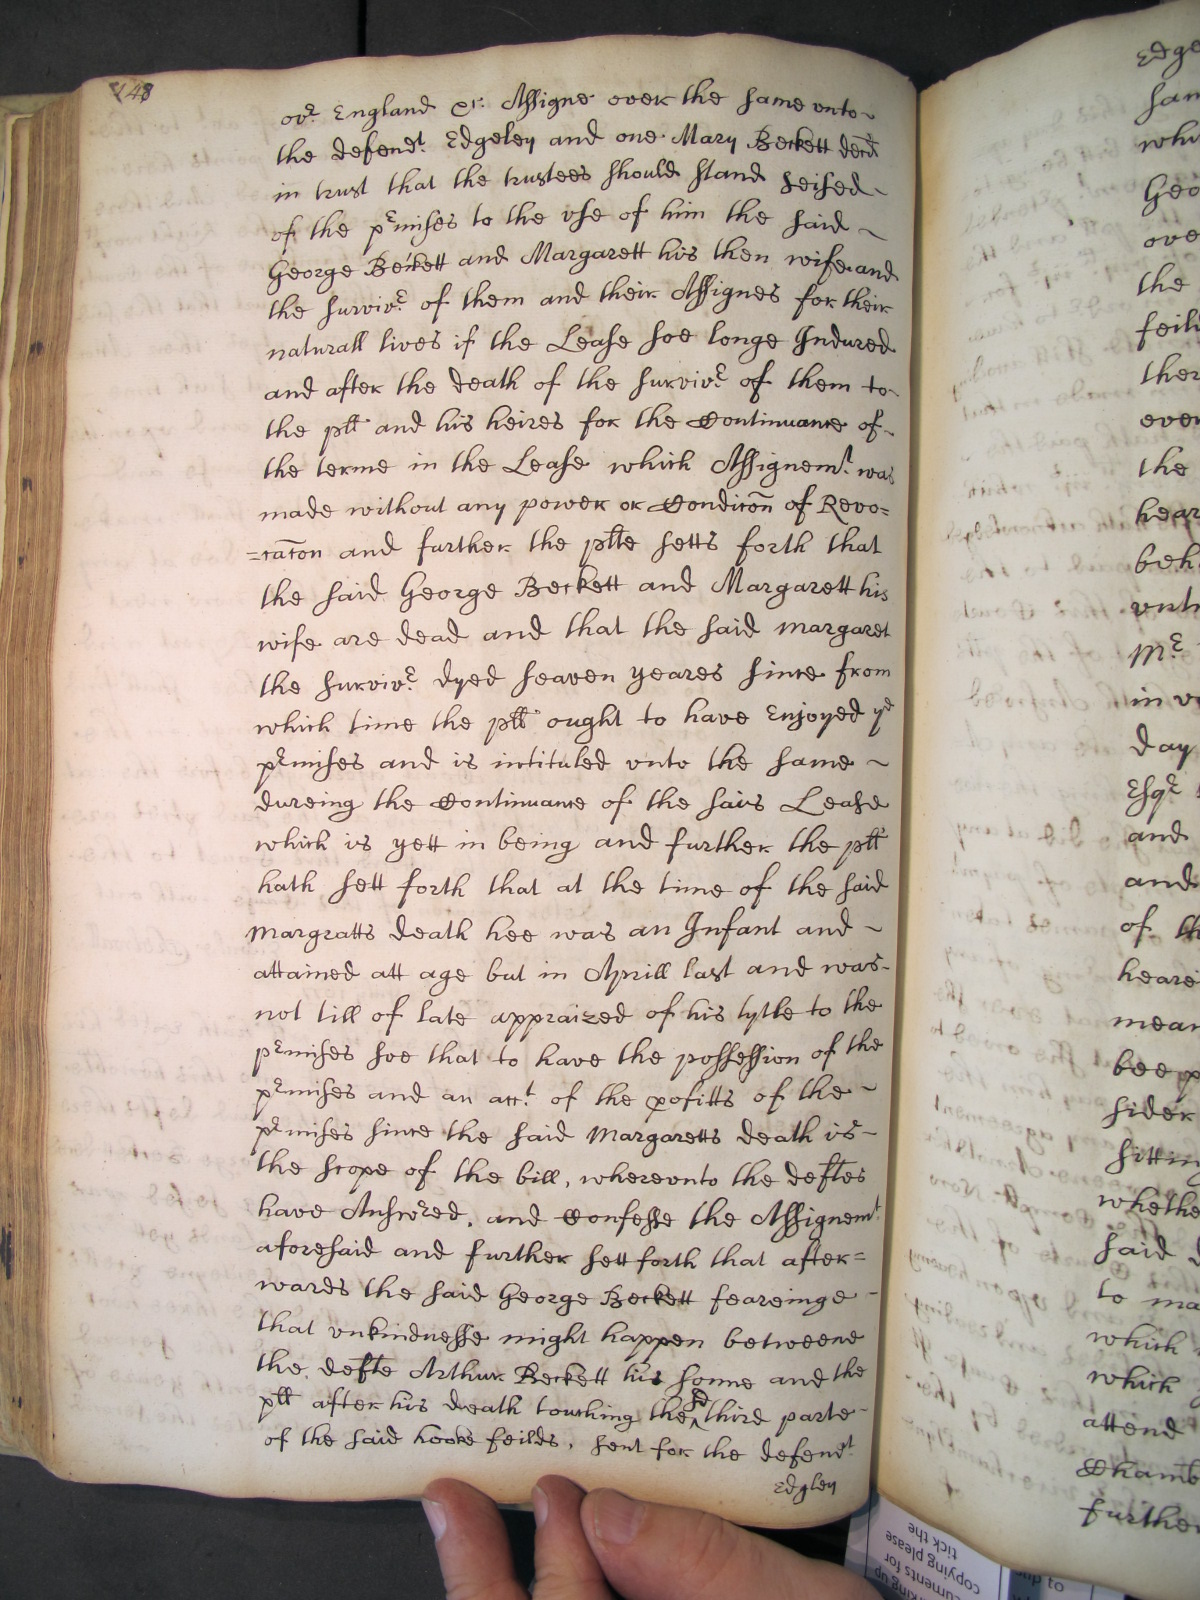 148
ovr England &c. Assigne over the same vnto
the defendt. Edgeley and one Mary Beckett decd
in trust that the trustees should stand seised
of the prmises to the vse of him the said
George Beckett and Margarett his then wife and
the survivr of them and their Assignes for their
naturall lives if the Lease soe longe Indured
and after the death of the survivr of them to
the plt and his heires for the Continuance of
the terme in the Lease which Assignemt. was
made without any power or Condicon of Revo=
=cacon and further the plte setts forth that
the said George Beckett and Margarett his
wife are dead and that the said Margaret
the survivr dyed seaven yeares since from
which time the plt ought to have Enjoyed ye
prmises and is intituled vnto the same
dureing the Continuance of the said Lease
which is yett in being and further the plt
hath sett forth that at the time of the said
Margratts death hee was an Infant and
attained att age but in Aprill last and was
not till of late appraized of his tytle to the
prmises soe that to have the possession of the
prmises and an acct. of the profitts of the
prmises since the said Margaretts death is
the scope of the bill, wherevnto the deftes
have Answred, and Confesse the Assignemt
aforesaid and further sett forth that after=
wards the said George Beckett feareinge
that vnkindnesse might happen betweene
the defte Arthur Beckett his sonne and the
plt after his death touching the sd third parte
of the said hooke feilds, sent for the defendt
Edgley